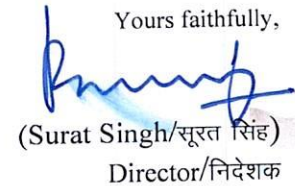 Yours faithfully,
(Surat Singh/सूरत सिंह)
Director/निदेशक